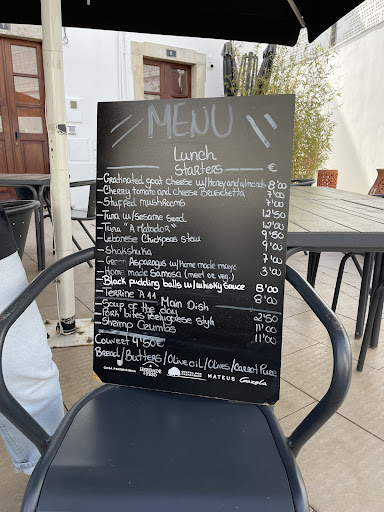 MENU
Lunch
Starters €
- Gratinated goat cheese w/Honey and almonds 8'00
- Cherry tomato and cheese Bruschetta 7'00
- Stuffed mushrooms 7'00
- Tuna w/Sesame Seed 12'50
- Tuna "A Matador" 12'50
- Lebanese Chickpeas stew 9'50
- Shakshuka 9'00
- Green Asparagus w/Home made mayo 7'00
- Home made Samosa (meat or veg) 3'00
- Black pudding balls w/whisky sauce 8'00
- Terrine A 11 8'00
Main Dish
Soup of the day 2'50
Pork bites Portuguese style 11'00
Shrimp Crumbs 11'00
Couvert 4'50€
Bread/Butters/Olive oil/Olives/Carrot Pure
MATEUS Gazela